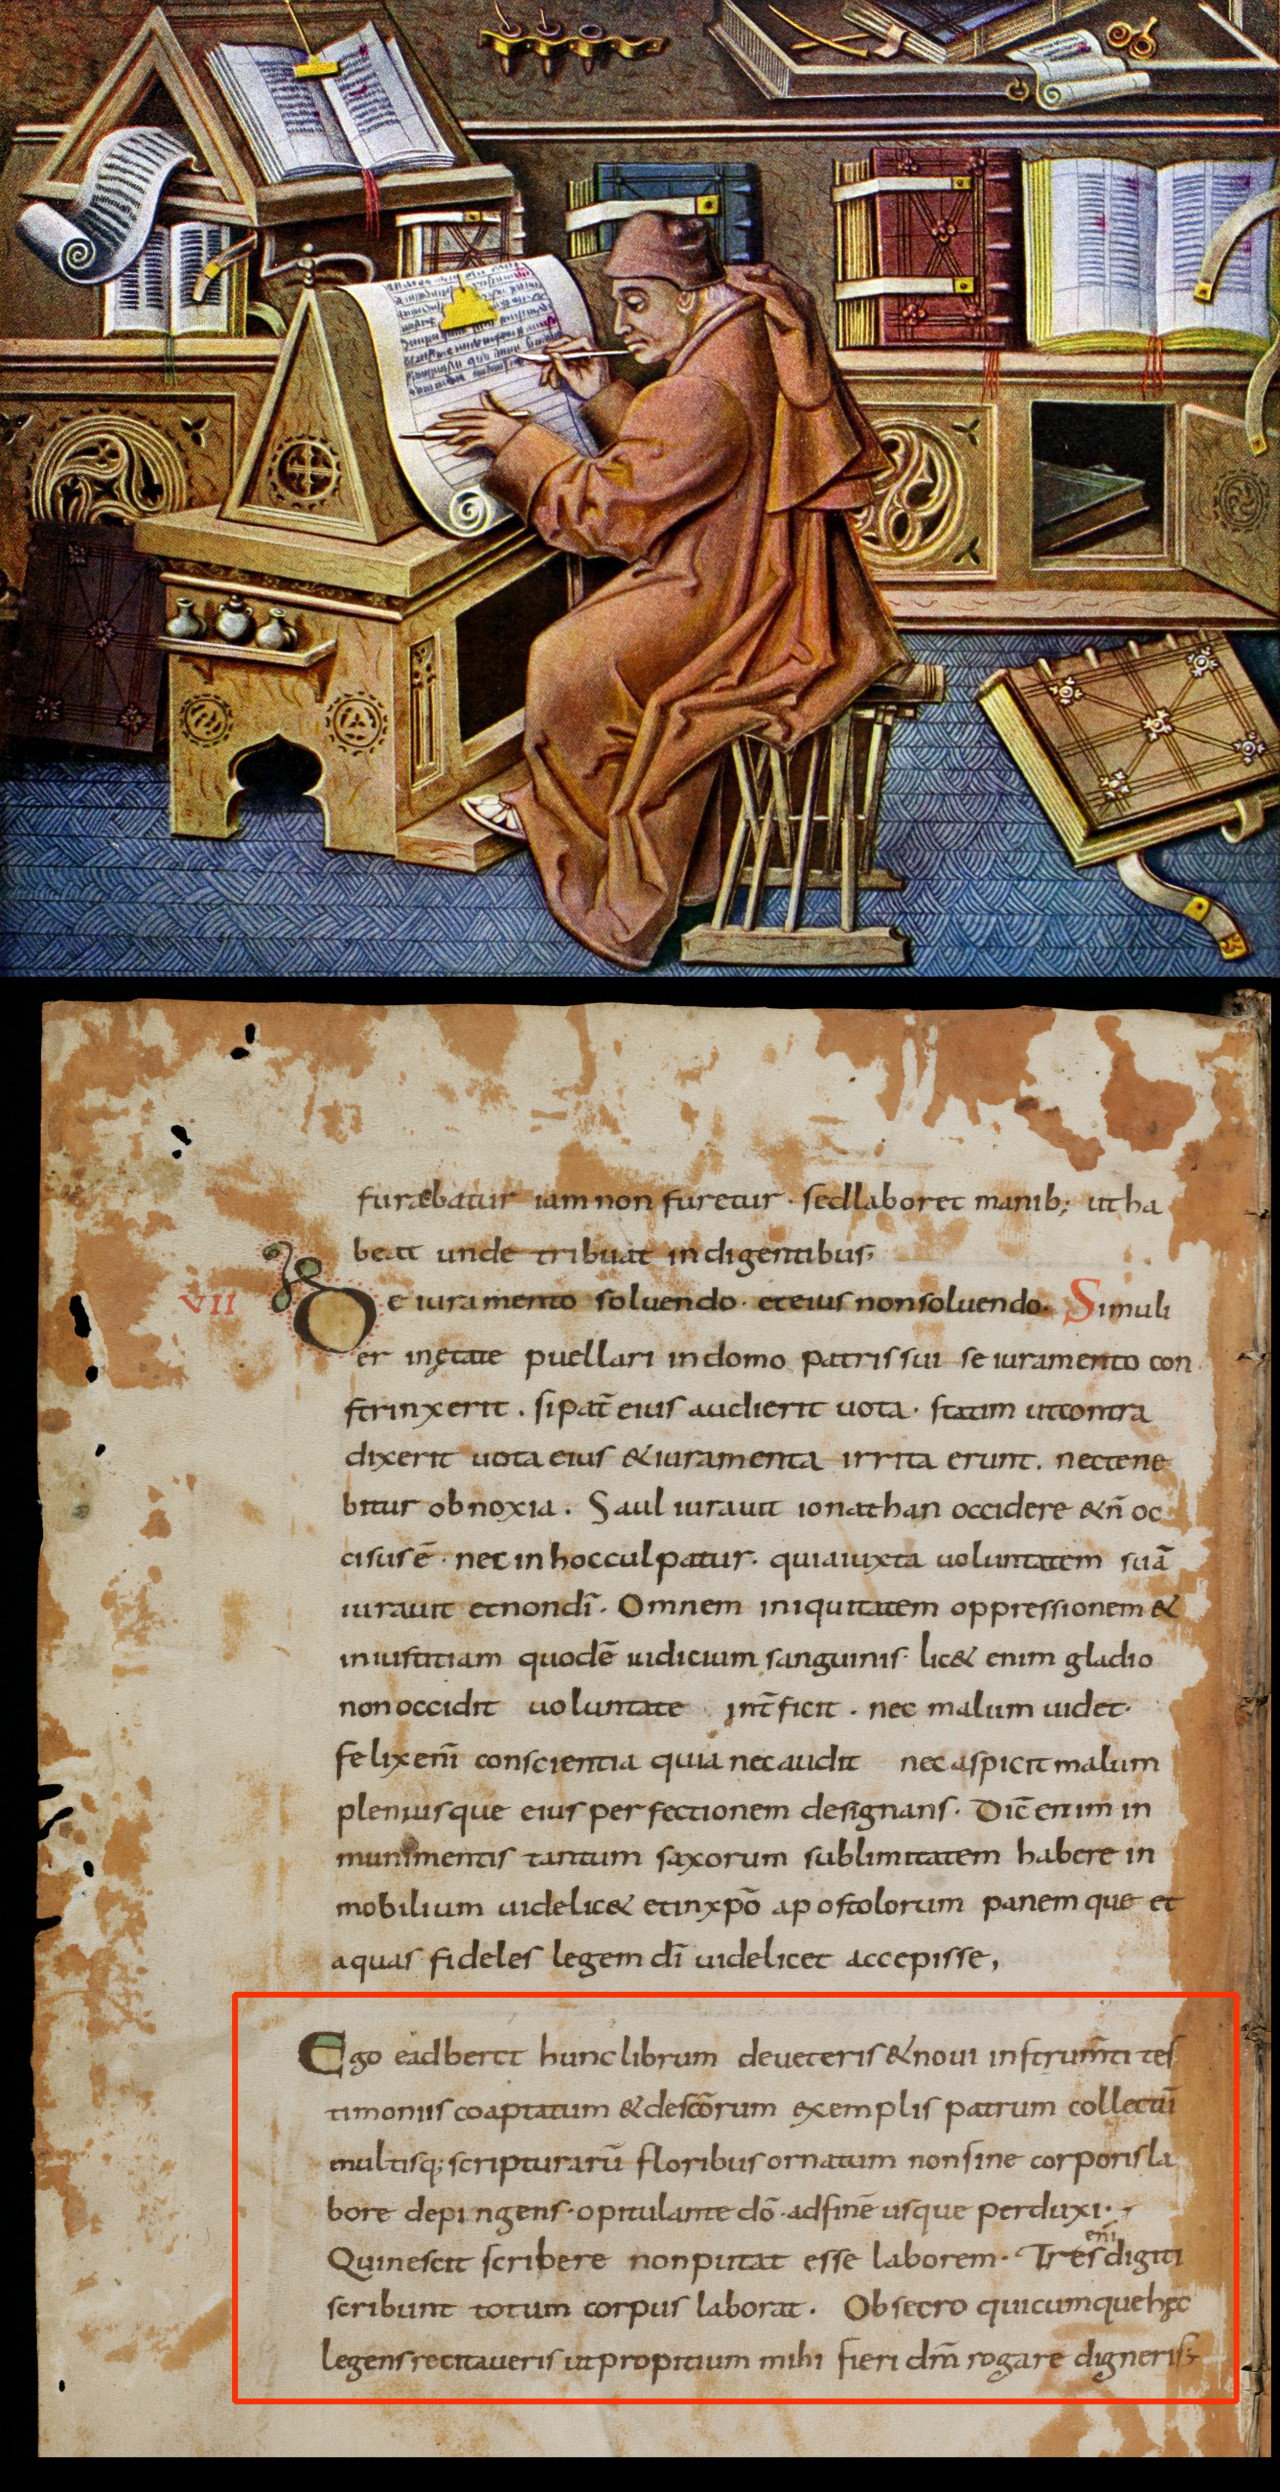 furæbatur iam non furetur · sedlaboret manib; ut ha
beat unde tribuat indigentibus;
VII De iuramento soluendo · eteius nonsoluendo · Simuli
ter inętate puellari indomo patris sui se iuramento con
strinxerit . sipat̄ eius audierit uota · statim utcontra
dixerit uota eius &iuramenta irrita erunt . nectene
bitur obnoxia . Saul iurauit ionathan occidere &n̄ oc
cisusē · nec inhocculpatur · quiaiuxta uoluntatem suā
iurauit etnondī · Omnem iniquitatem oppressionem &
iniustitiam quodē iudicium sanguinis · lic& enim gladio
nonoccidit uoluntate int̄ficit . nec malum uidet ·
felixenī conscientia quia necaudit necaspicit malum
pleniusque eius perfectionem designans · Dic̄ enim in
munimentis tantum saxorum sublimitatem habere in
mobilium uidelic& etinxpō apostolorum panemque et
aquas fideles legem dī uidelicet accepisse,
Ego eadberct hunclibrum deueteris &noui instrum̄ti tes
timoniis coaptatum &desc̄orum exemplis patrum collectū
multisq; scripturarū floribus ornatum nonsine corporis la
bore depingens · opitulante dō · adfinē usque perduxi ·
Quinescit scribere nonputat esse laborem · Tres enī digiti
scribunt totum corpus laborat . Obsecro quicumquehęc
legens recitaueris utpropitium mihi fieri dm̄ rogare digneris;